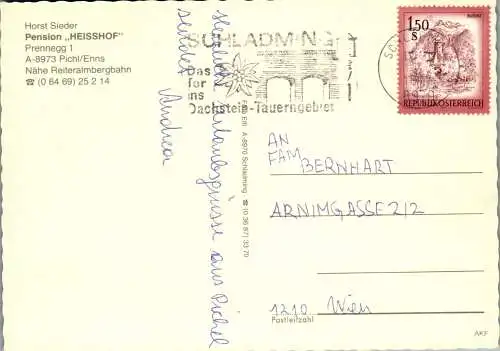 Horst Sieder
Pension „HEISSHOF"
Prennegg 1
A-8973 Pichl/Enns
Nähe Reiteralmbergbahn
☎ (0 64 69) 25 2 14
SCHLADMING
Das Tor
ins
Dachstein-Tauerngebiet
1.50
S
REPUBLIK ÖSTERREICH
Herzliche Urlaubsgrüsse aus Pichel
sendet
Andrea
A-8970 Schladming ☎ (0 36 87) 33 79
AN
FAM BERNHART
ARNIMGASSE 2/2
1210 Wien
Postleitzahl
AKF